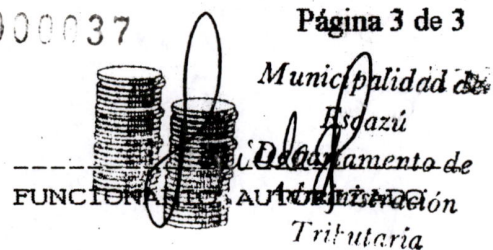 000037
Página 3 de 3
Municipalidad de
Escazú
Departamento de
Administración
Tributaria
FUNCIONARIO AUTORIZADO